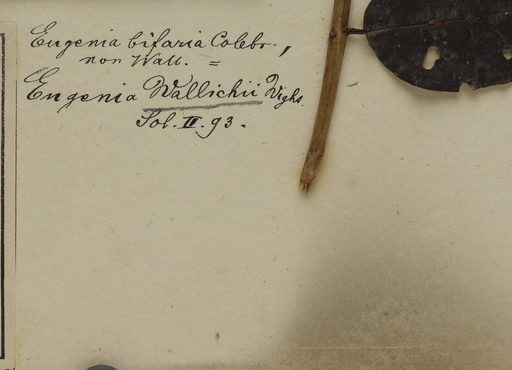 Eugenia bifaria Colebr.,
non Wall. =
Eugenia Wallichii Wight
Sol. II. 93.